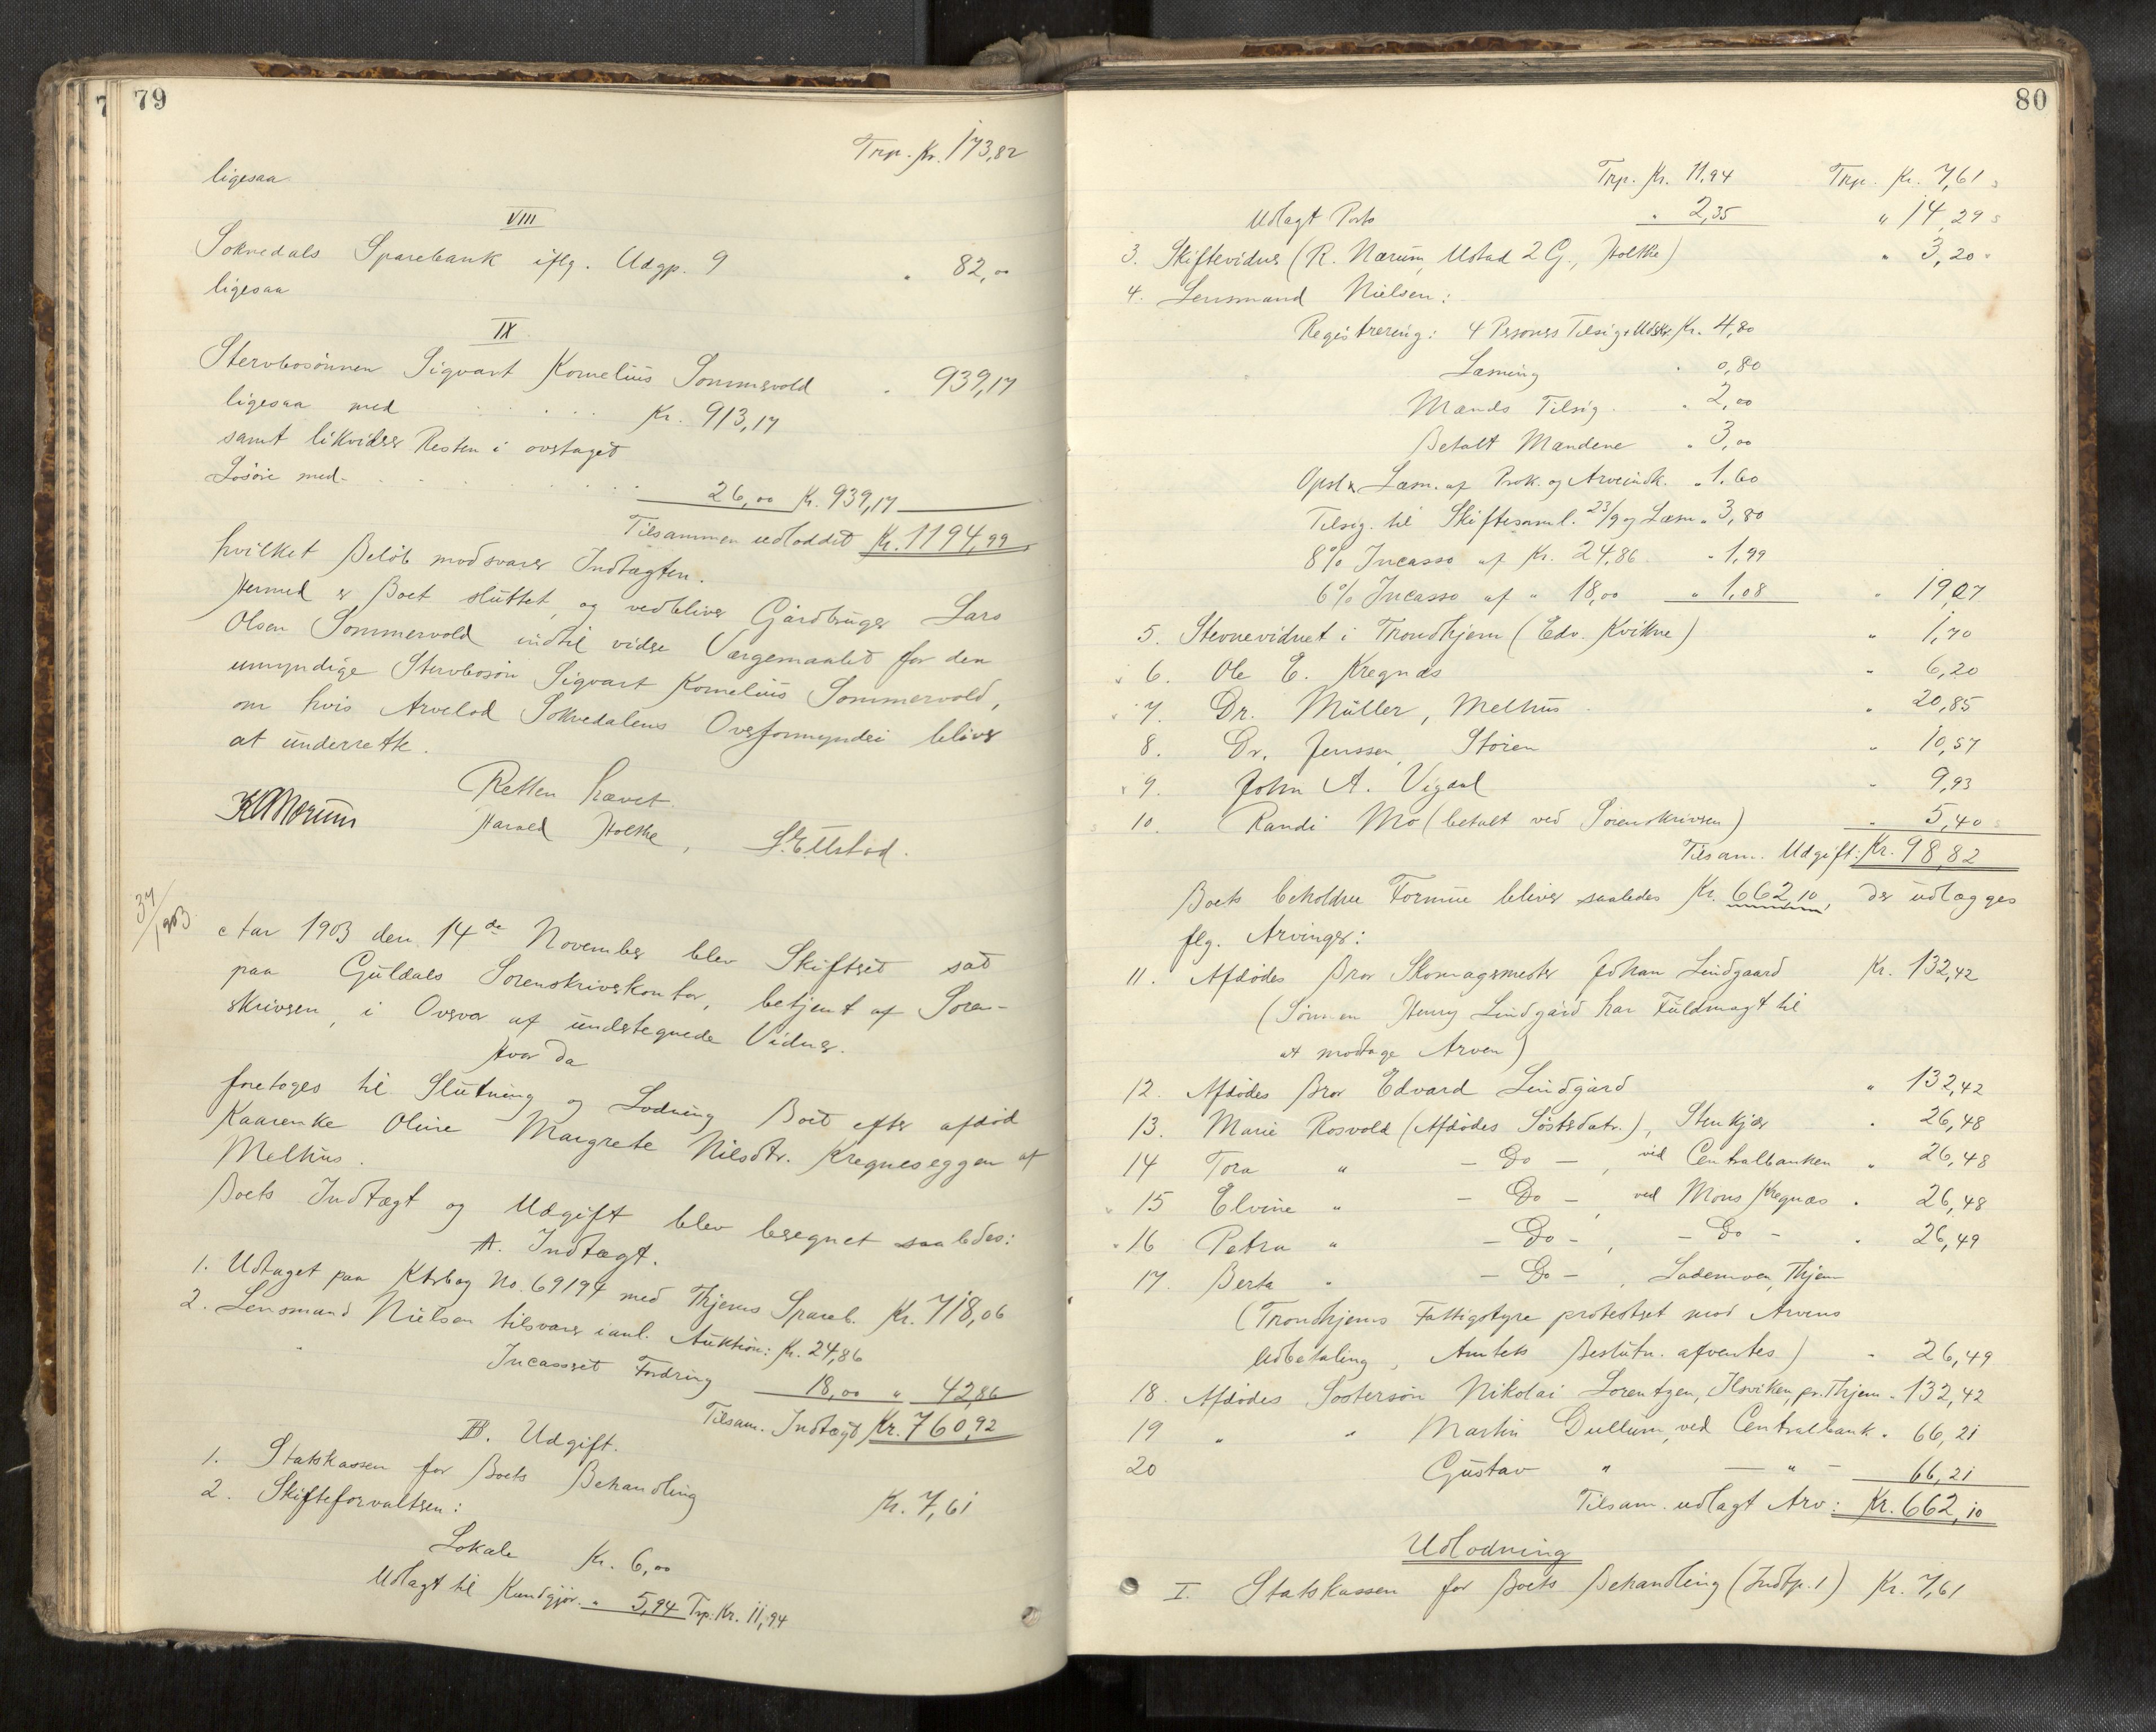 79
Trp. Kr. 173,82
ligesaa
VIII
Soknedals Sparebank iflg. Udgp. 9 " 82,00
ligesaa
IX
Stervbosönnen Sigvart Kornelius Sommervold " 939,17
ligesaa med . . . . . Kr. 913,17
samt likvider Resten i overtaget
Lösöre med . . . . . . 26,00 Kr. 939,17
Tilsammen udloddet Kr. 1194,99
hvilket Belöb modsvarer Indtægten.
Hermed er Boet sluttet, og vedbliver Gårdbruger Lars
Olsen Sommervold indtil videre Værgemaalet for den
umyndige Stervbosön Sigvart Kornelius Sommervold,
om hvis Arvelod Soknedalens Overformynderi bliver
at underrette.
Retten hævet.
Harald Holthe, S. E. Ustad.
37/1903
Aar 1903 den 14de November blev Skifteret sat
paa Guldals Sorenskriverkontor, betjent af Soren-
skriveren, i Overvær af undertegnede Vidner.
Hvor da
foretoges til Slutning og Lodning Boet efter afdöd
Kaarenke Oline Margrete Nilsdtr. Kregneseggen af
Melhus.
Boets Indtægt og Udgift blev beregnet saaledes:
A. Indtægt.
1. Udtaget paa Ktrbog No. 69194 med Thjems Spareb. Kr. 718,06
2. Lensmand Nielsen tilsvarer ianl. Auktion: Kr. 24,86
Incasseret Fordring 18,00 " 42,86
Tilsam. Indtægt Kr. 760,92
B. Udgift.
1. Statskassen for Boets Behandling Kr. 7,61
2. Skifteforvalteren:
Lokale Kr. 6,00
Udlagt til Kundgjör. " 5,94 Trp. Kr. 11,94
80
Trp. Kr. 11,94 Trp. Kr. 7,61
Udlagt Porto " 2,35 " 14,29
3. Skiftevidner (R. Nærum, Ustad 2 G., Holthe) " 3,20
4. Lensmand Nielsen:
Registrering: 4 Personers Tilsig. + Udskr. Kr. 4,80
Læsning " 0,80
Mænds Tilsig. " 2,00
Betalt Mændene " 3,00
Opsl. & Læsn. af Prok. og Arveindk. " 1,60
Tilsig. til Skiftesaml. 23/9 og Læsn. " 3,80
8% Incasso af Kr. 24,86 " 1,99
6% Incasso af " 18,00 " 1,08 " 19,07
5. Stevnevidnet i Trondhjem (Edv. Kvikne) " 1,70
6. Ole E. Kregnæs " 6,20
7. Dr. Müller, Melhus " 20,85
8. Dr. Jenssen, Stören " 10,57
9. John A. Vigdal " 9,93
10. Randi Mo (betalt ved Sorenskriveren) " 5,40
Tilsam. Udgift: Kr. 98,82
Boets beholdne Formue bliver saaledes Kr. 662,10, der udlægges
flg. Arvinger:
11. Afdödes Bror Skomagermester Johan Lindgaard Kr. 132,42
(Sönnen Henry Lindgård har Fuldmagt til
at modtage Arven)
12. Afdödes Bror Edvard Lindgård " 132,42
13. Marie Rosvold (Afdödes Sösterdatr.), Stenkjær " 26,48
14 Tora " — Do —, ved Centralbanken " 26,48
15 Elvine " — Do —, ved Mons Kregnæs " 26,48
16 Petra " — Do —, — Do — " 26,49
17. Berta " — Do —, Lademoen, Thjem
(Trondhjems Fattigstyre protesteret mod Arvens
Udbetaling, Amtets Beslutn. afventes) " 26,49
18. Afdödes Söstersön Nikolai Lorentzen, Ilsviken, pr. Thjem " 132,42
19 " " Martin Dullum, ved Centralbank " 66,21
20 Gustav " — " — 66,21
Tilsam. udlagt Arv: Kr. 662,10
Udlodning
I. Statskassen for Boets Behandling (Indtp. 1) Kr. 7,61